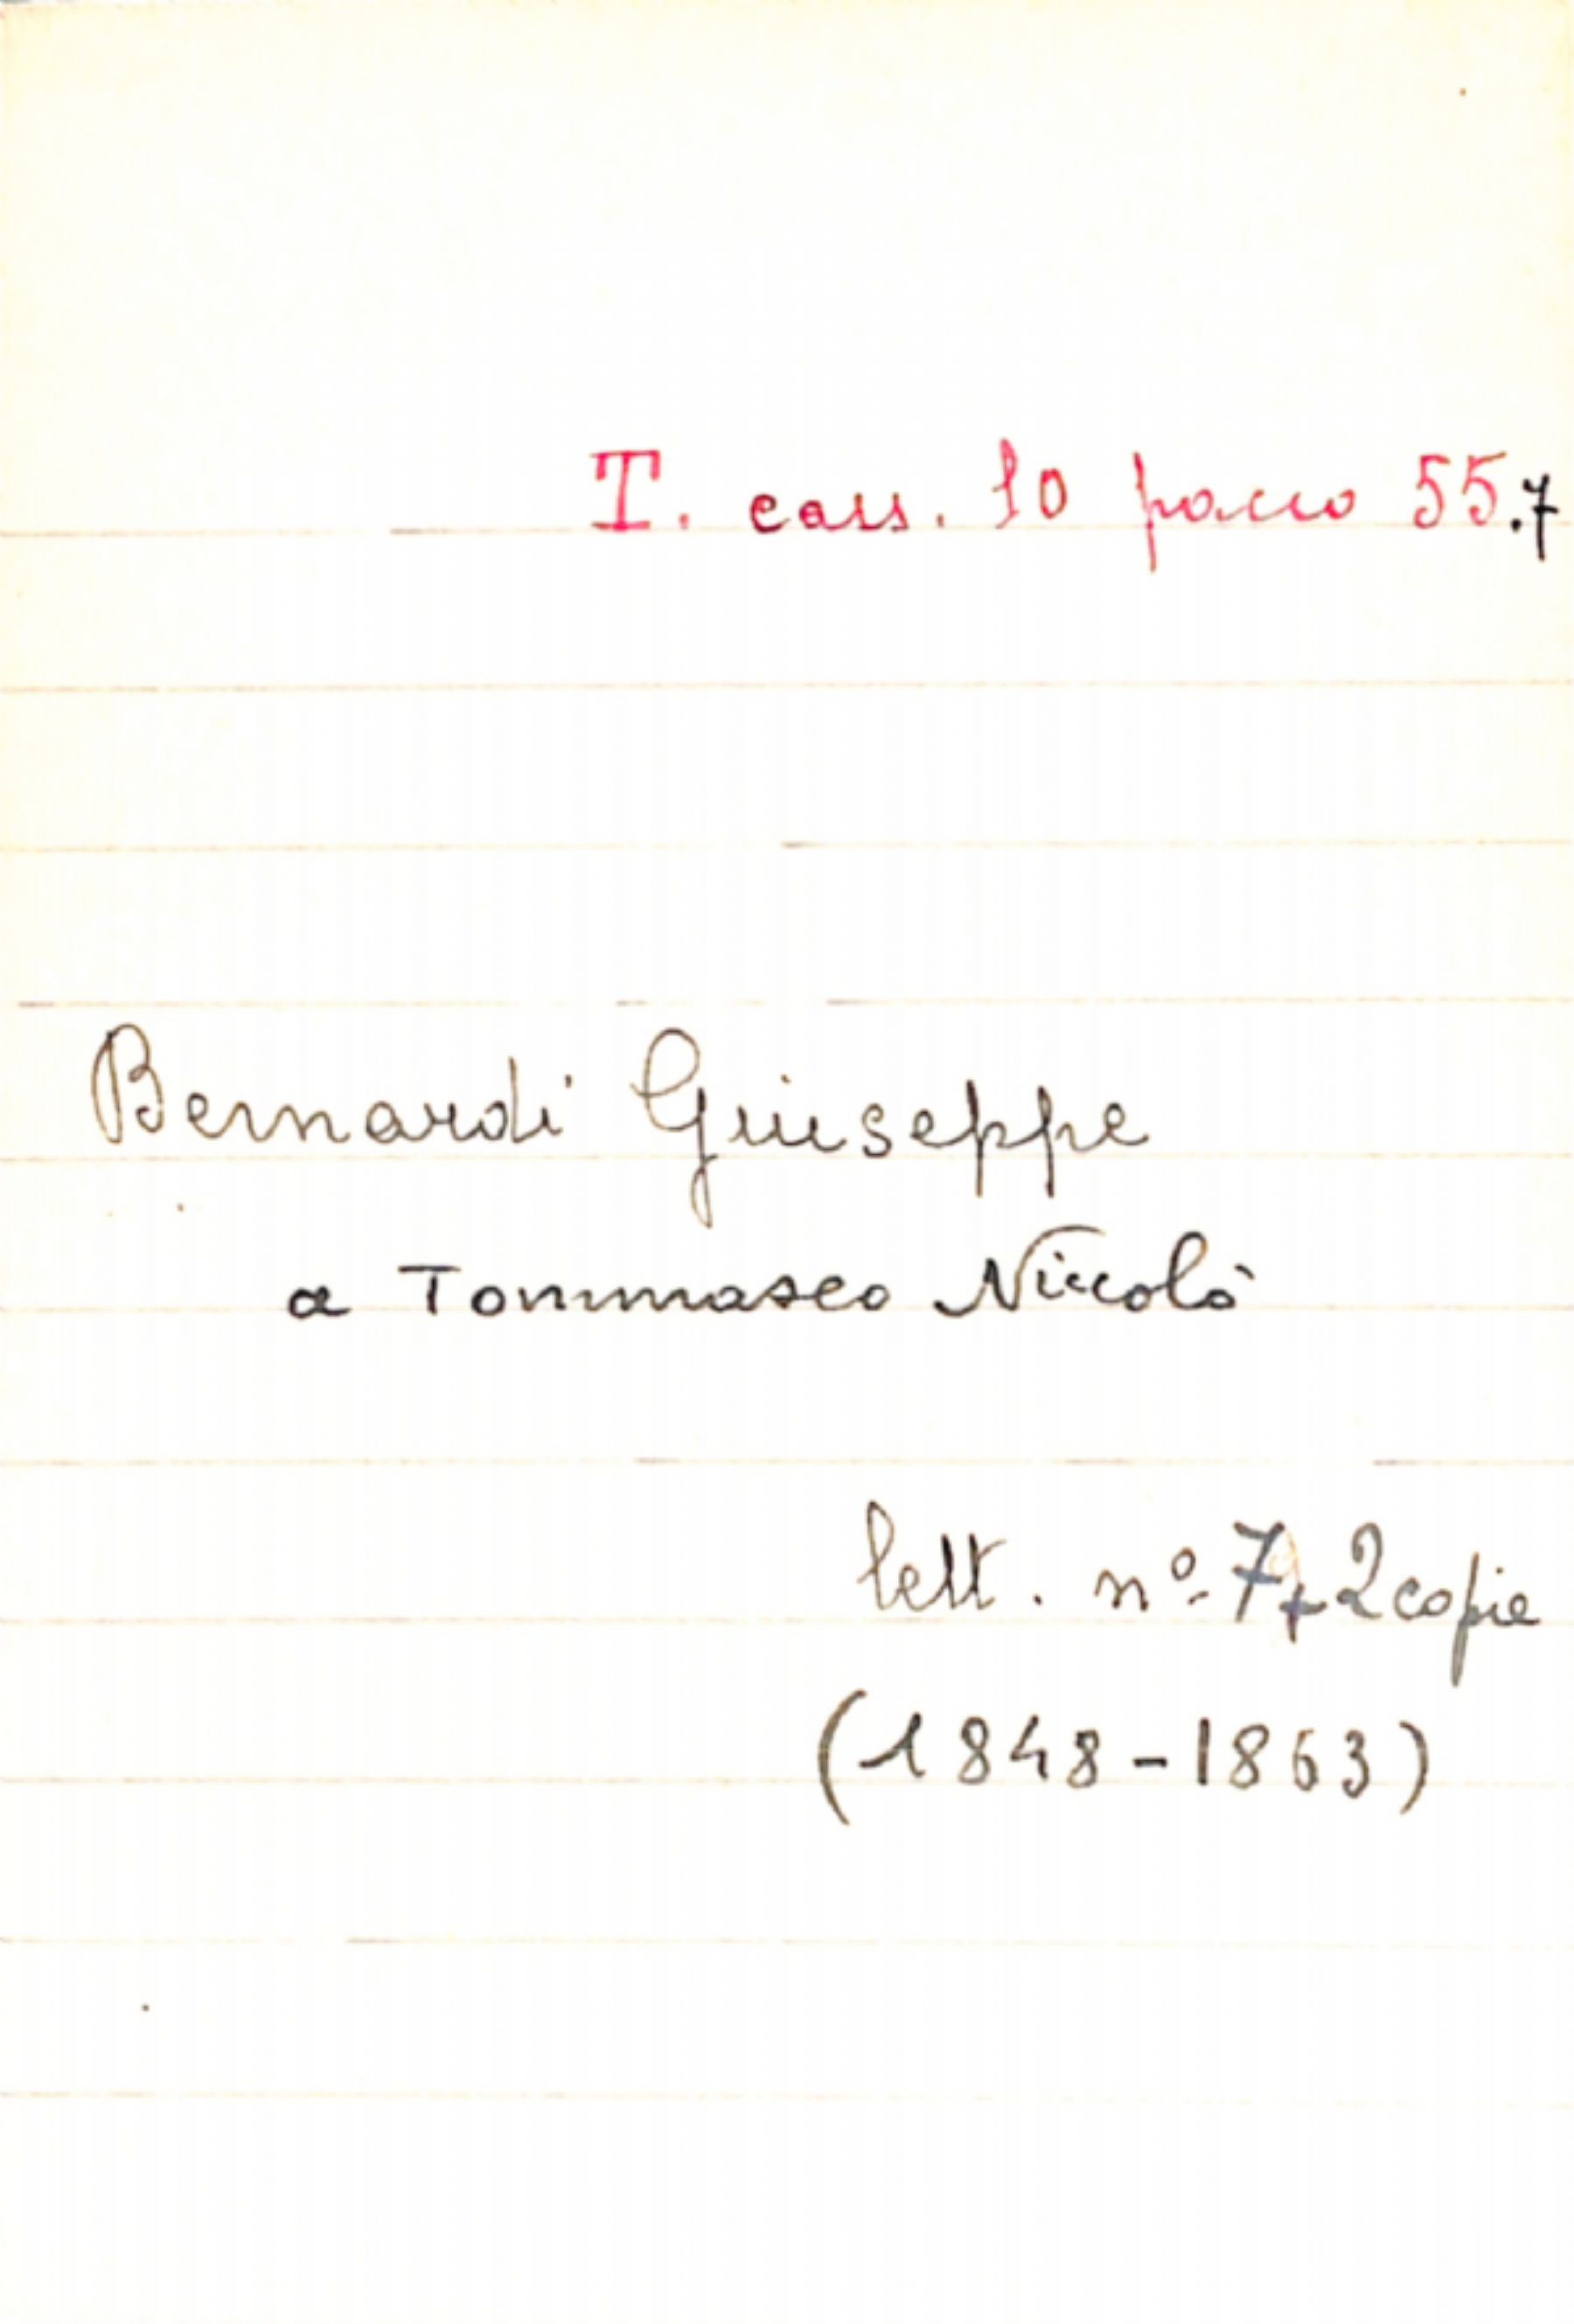 T. cass. 10 pacco 55.7
Bernardi Giuseppe
a Tommaseo Niccolò
lett. nº 7+2 copie
(1848-1863)